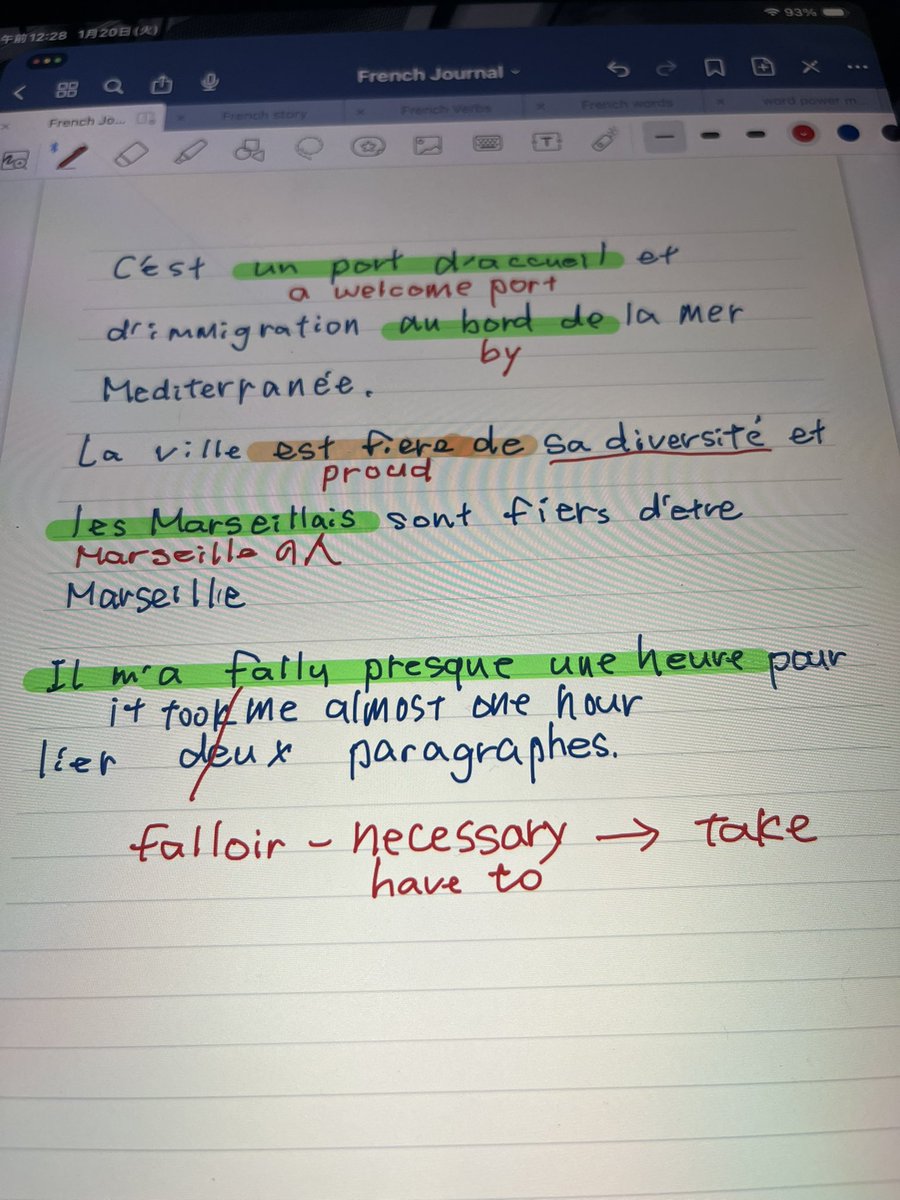 午前12:28 1月20日(火)
93%
French Journal
French Jo...
French story
French Verbs
French words
word power m...
T
C'est un port d'accueil et
a welcome port
d'immigration au bord de la mer
by
Mediterranée.
La ville est fiere de sa diversité et
proud
les Marseillais sont fiers d'etre
Marseilleの人
Marseillie
Il m'a fally presque une heure pour
it took me almost one hour
lier deux paragraphes.
falloir - necessary → take
have to